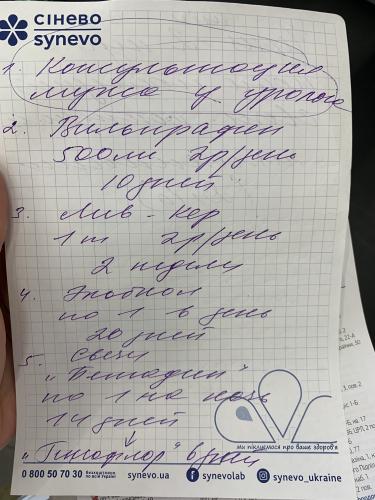 СІНЕВО
synevo
1. Консультация
мужа у уролога
2. Вильпрафен
500мл 2р/день
10 дней
3. Лив-кер
1т 2р/день
2 недели
4. Экобиол
по 1 в день
20 дней
5. Свечи
"Бетадин"
по 1 на ночь
14 дней
"Гинофлор"
ми піклуємося про ваше здоров'я
0 800 50 70 30 synevo.ua synevolab synevo_ukraine